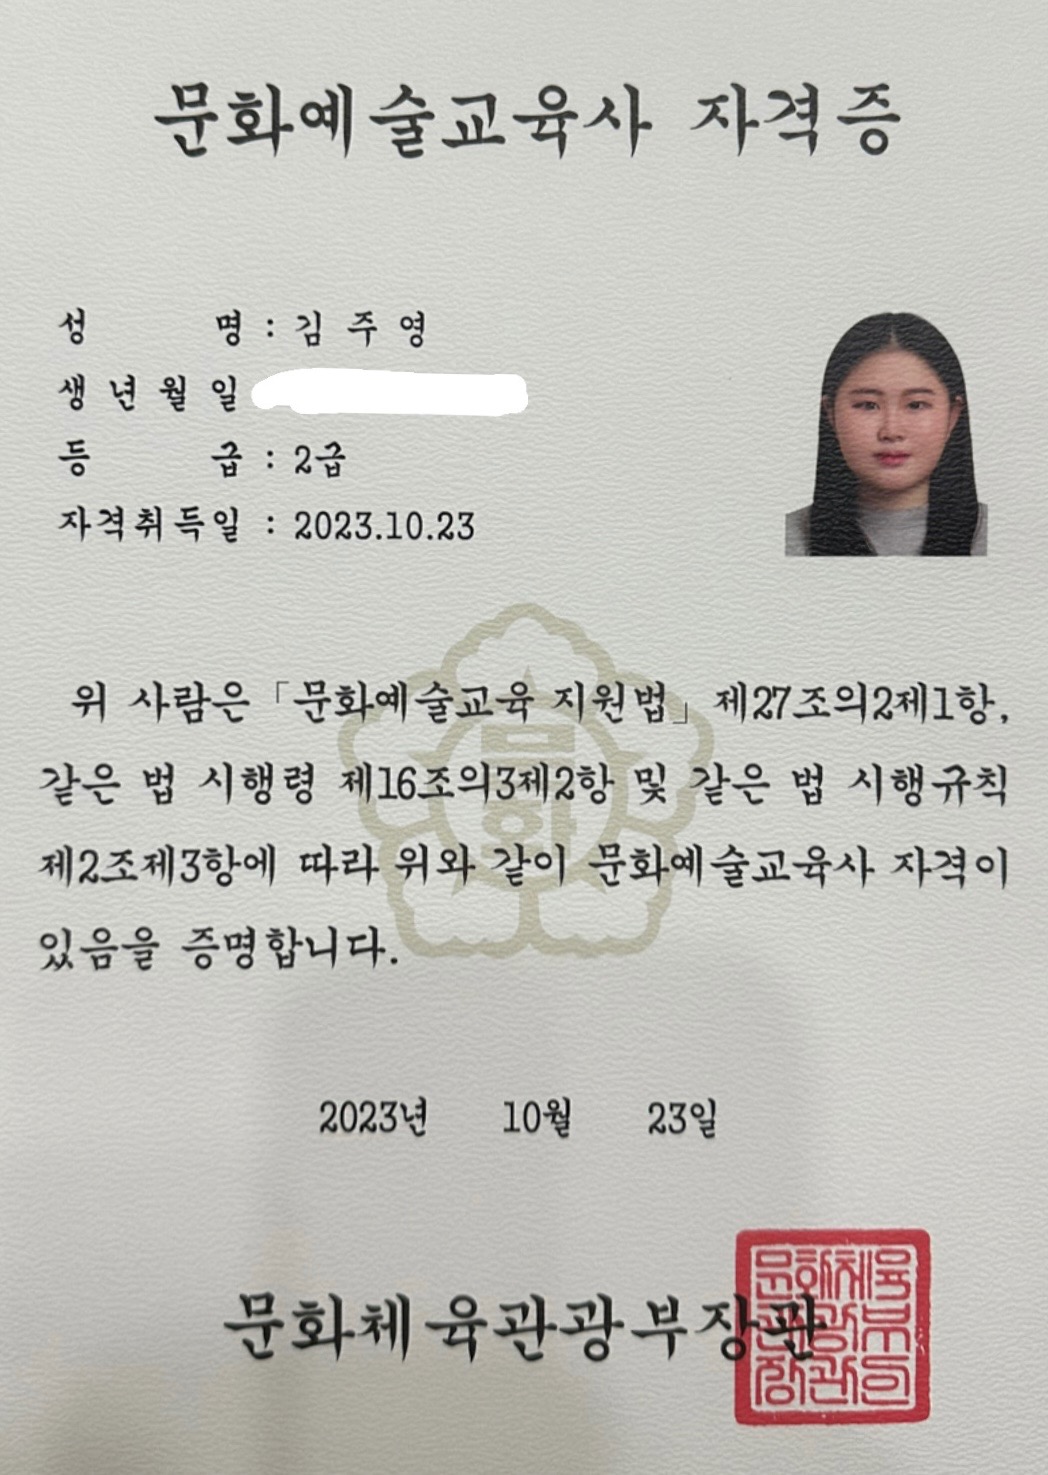 문화예술교육사 자격증
성 명 : 김 주 영
생 년 월 일
등 급 : 2급
자격취득일 : 2023.10.23
위 사람은 「문화예술교육 지원법」 제27조의2제1항,
같은 법 시행령 제16조의3제2항 및 같은 법 시행규칙
제2조제3항에 따라 위와 같이 문화예술교육사 자격이
있음을 증명합니다.
문화
2023년 10월 23일
문화체육관광부장관
문화체육
관광부
장관인